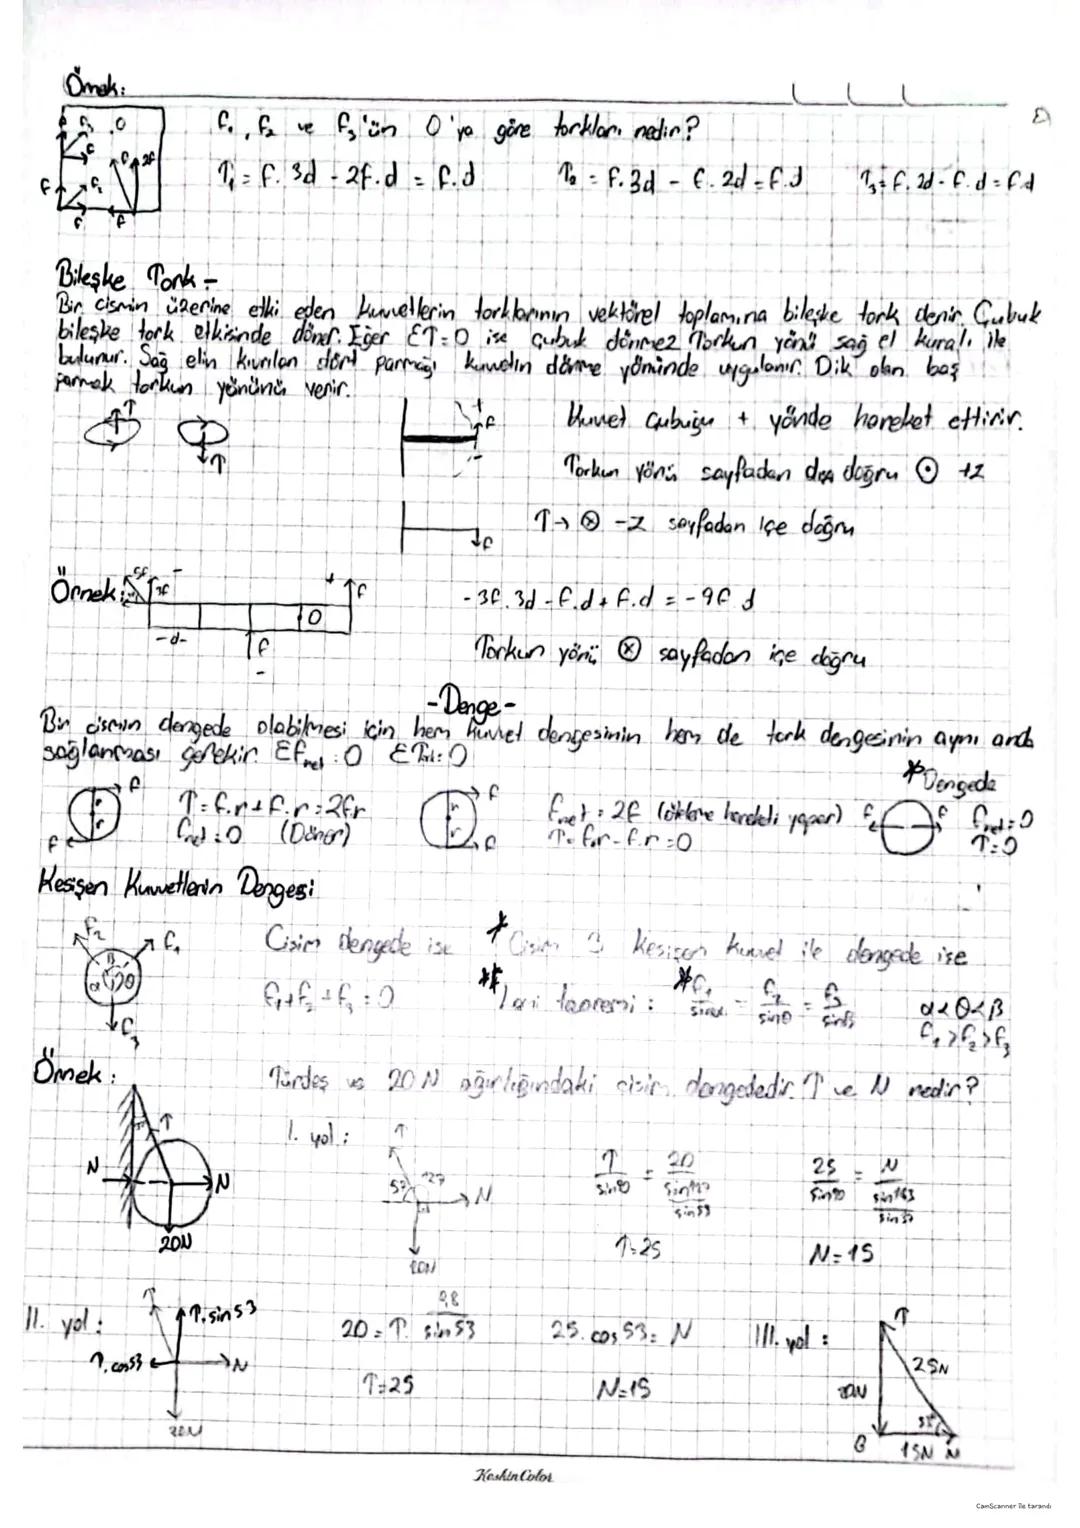 Örnek:
F₁, F₂ ve F₃'ün O'ya göre torkları nedir?
T₁ = F. 3d - 2F.d = F.d   T₂ = F.3d - F.2d = F.d   T₃ = F. 2d - F. d = F.d
Bileşke Tork -
Bir cismin üzerine etki eden kuvvetlerin torklarının vektörel toplamına bileşke tork denir. Çubuk
bileşke tork etkisinde döner. Eğer ΣT=0 ise çubuk dönmez. Torkun yönü sağ el kuralı ile
bulunur. Sağ elin kıvrılan dört parmağı kuvvetin dönme yönünde uygulanır. Dik olan baş
parmak torkun yönünü verir.
Kuvvet çubuğu + yönde hareket ettirir.
Torkun yönü sayfadan dışa doğru ⊙ +z
T → ⊗ -z sayfadan içe doğru
Örnek:
-3F.3d - F.d + F.d = -9F d
Torkun yönü ⊗ sayfadan içe doğru
-Denge-
Bir cismin dengede olabilmesi için hem kuvvet dengesinin hem de tork dengesinin aynı anda
sağlanması gerekir. ΣFnet = 0
*Dengede
T = F.r + F.r = 2Fr
Fnet = 0 (Döner)
Fnet = 2F (öteleme hareketi yapar)
T = F.r - F.r = 0
Fnet = 0
T = 0
Kesişen Kuvvetlerin Dengesi
Cisim dengede ise
F₁+F₂+F₃ = 0
* Cisim 3 kesişen kuvvet ile dengede ise
** Lami teoremi : * F₁/sinα = F₂/sinθ = F₃/sinβ
α<θ<β
F₁>F₂>F₃
Örnek :
Türdeş ve 20 N ağırlığındaki cisim dengededir. T ve N nedir?
I. yol :
T/sin90 = 20/sin127
sin53
25/sin90 = N/sin143
sin37
T=25
N=15
20N
II. yol :
T.sin53
T.cos53
N
20N
20 = T. sin53
0,8
25. cos53 = N
T=25
N=15
III. yol :
T
25N
20N
53°
G
15N N
Keskin Color
CamScanner ile tarandı